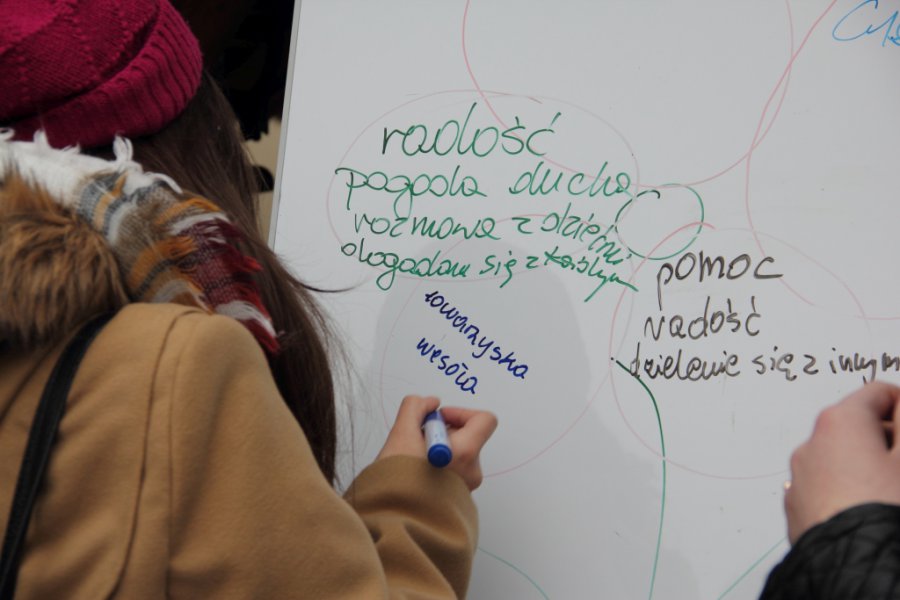 radość
pogoda ducha
rozmowa z dziećmi
dogadam się z każdym
towarzyska
wesoła
pomoc
radość
dzielenie się z innym